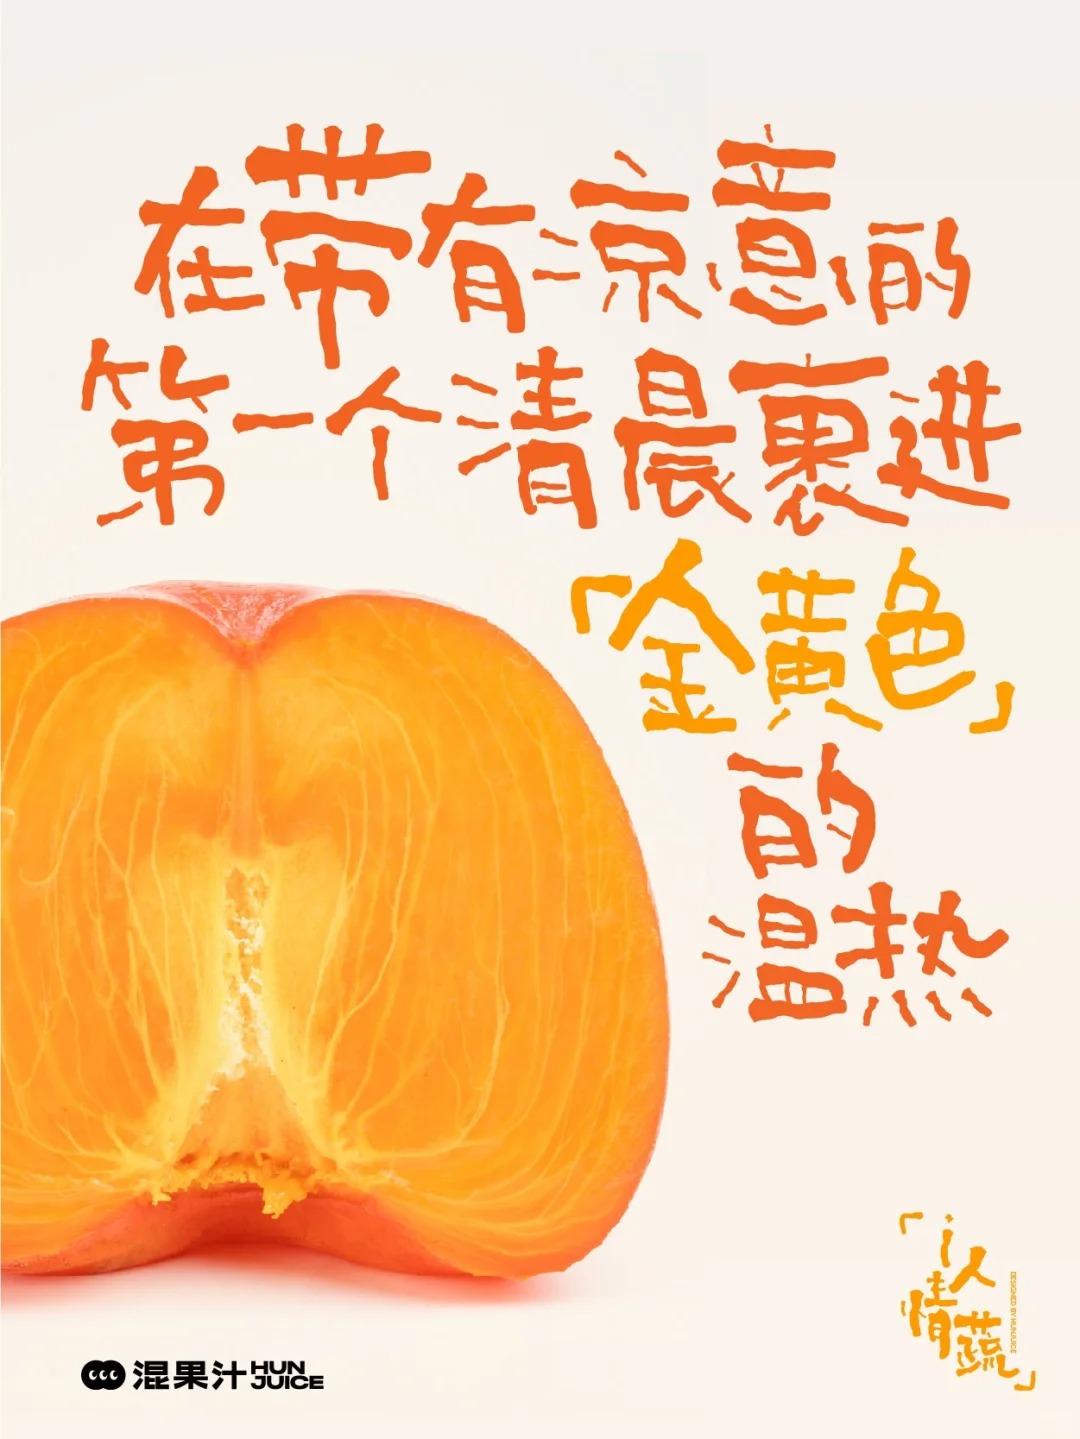 在带有凉意的
第一个清晨裹进
「金黄色」
的
温热
「i人
情蔬」
DESIGNED BY HUNJUICE
混果汁 HUN JUICE